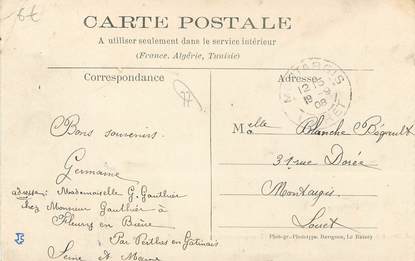 6€
CARTE POSTALE
A utiliser seulement dans le service intérieur
(France, Algérie, Tunisie)
Correspondance
Adresse
77
MONTARGIS
12
08
LOIRET
Bons souvenirs
Germaine
adresse: Mademoiselle G. Gauthier
chez Monsieur Gauthier à
Fleury en Bière
Par Perthes en Gâtinais
Seine et Marne
Melle Blanche Bégault
31 rue Dorée
Montargis
Loiret
Phot-gr.-Phototype. Bavegnon, Le Raincy